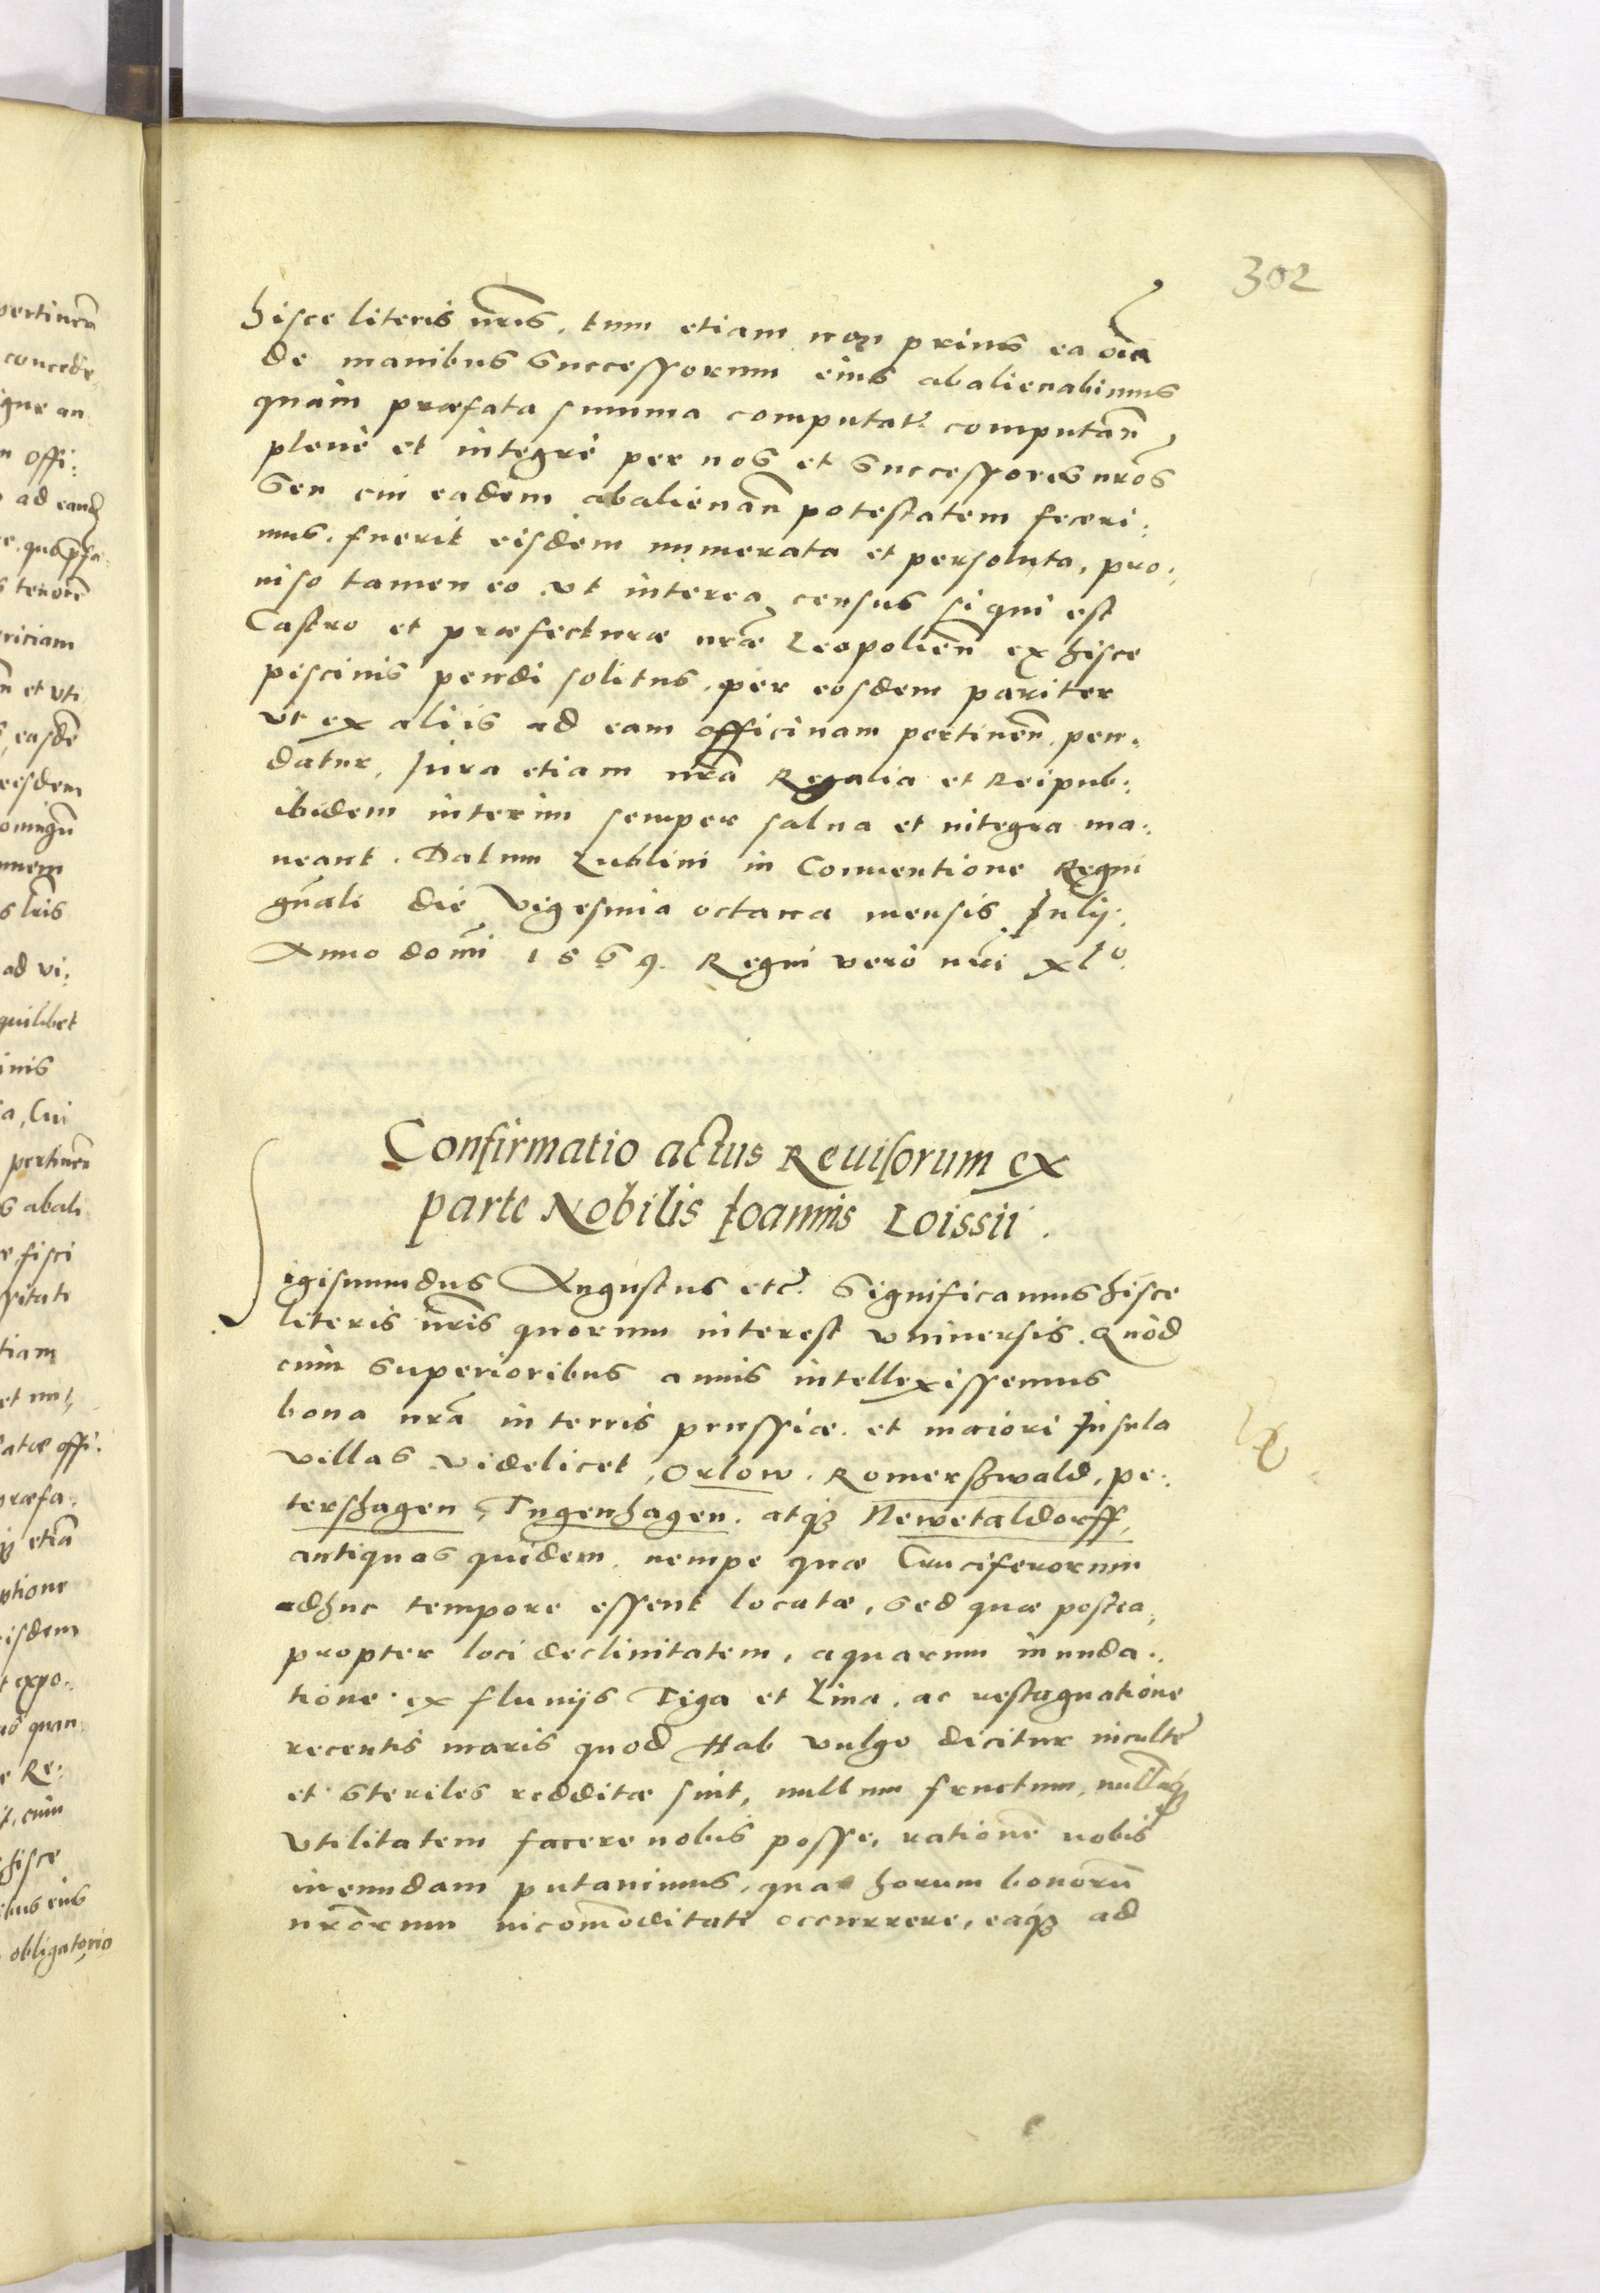 302
hisce literis nr̃is. tum etiam non prius ea oĩa
de manibus Successorum eius abalienabimus
quàm præfata summa computat. computan̄
plenè et integrè per nos et Successores nr̃os
Seu cui eadem abalienan̄ potestatem feceri:
mus. fuerit eisdem numerata et persoluta, pro:
uiso tamen eo vt interea census si qui est
Castro et præfecturæ nr̃æ Leopolien̄ ex hisce
piscinis pendi solitus, per eosdem pariter
vt ex aliis ad eam officinam pertinen̄, pen:
datur, Iura etiam nr̃a Regalia et Reipub:
ibidem interim semper salua et integra ma:
neant. Datum Lublini in Conuentione Regni
gn̄ali die Vigesima octaua mensis Iulij.
Anno domi 1569. Regni verò nr̃i xl°.
Confirmatio actus Reuisorum ex
parte Nobilis Ioannis Loissii.
Sigismundus Augustus etc. Significamus hisce
literis nr̃is quorum interest vniuersis. Quòd
cùm Superioribus annis intellexissemus
bona nr̃a in terris prussiæ. et maiori Insula
villas videlicet, Orlow. Romerßwald, pe:
tershagen, Tugenhagen. atq́ Newetaldorff,
antiquas quidem, nempe quæ Cruciferorum
adhuc tempore essent locatæ, sed quæ postea,
propter loci decliuitatem, aquarum inunda:
tione ex fluuijs Tiga et Lina, ac restagnatione
recentis maris quod Hab vulgo dicitur incultæ
et Steriles redditæ sint, nullum fructum, nullamq́
vtilitatem facere nobis posse, rationem nobis
ineundam putauimus, qua horum bonorū
nr̃orum incom̄oditati occurrere, eaq́ ad